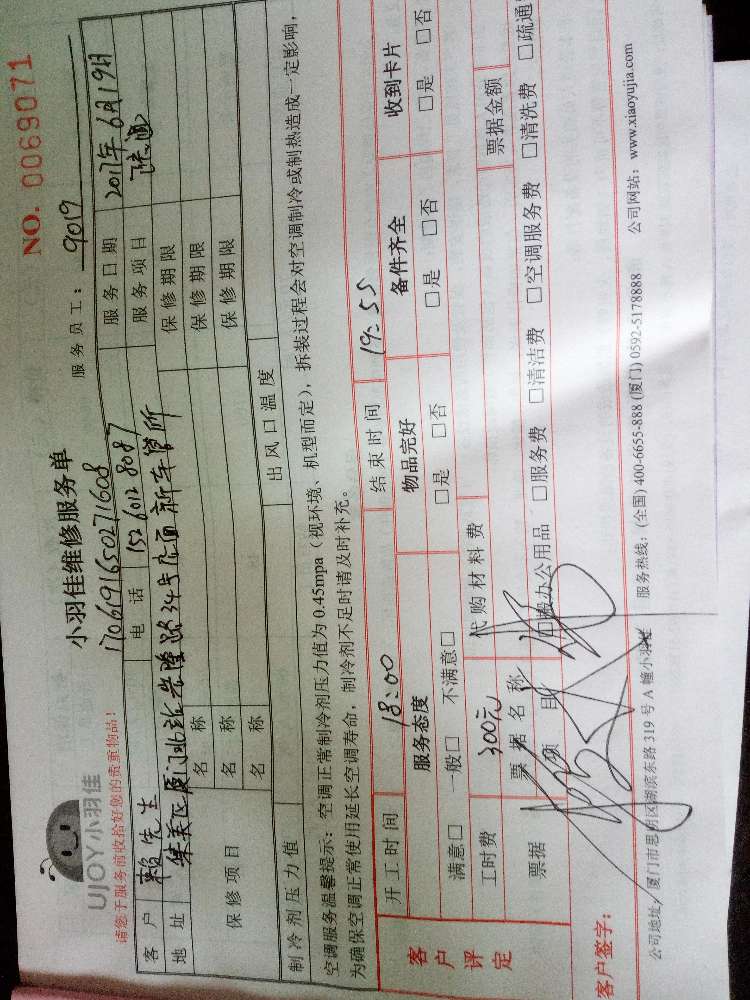 UJOY小羽佳
NO. 0069071
小羽佳维修服务单
请您于服务前收拾好您的贵重物品！
17061916502711608
服务员工： 9019
客户 赖先生 电话 152 6012 8087 服务日期 2017年6月19日
地址 集美区厦门北站岩隆路34号店面新车管所 服务项目
保修项目
名称 保修期限
名称 保修期限
名称 保修期限
制冷剂压力值 出风口温度
空调服务温馨提示：空调正常制冷剂压力值为0.45mpa（视环境、机型而定），拆装过程会对空调制冷或制热造成一定影响，
为确保空调正常使用延长空调寿命，制冷剂不足时请及时补充。
开工时间 18:00 结束时间 19:55
客户评定
服务态度 物品完好 备件齐全 收到卡片
满意□ 一般□ 不满意□ □是 □否 □是 □否 □是 □否
工时费 300元 代购材料费
票据 票据名称 票据金额
项目 办公用品 □服务费 □清洁费 □空调服务费 □清洗费 □疏通
客户签字：
公司地址：厦门市思明区湖滨东路319号A幢小羽佳 服务热线：(全国) 400-6655-888 (厦门) 0592-5178888 公司网站：www.xiaoyujia.com